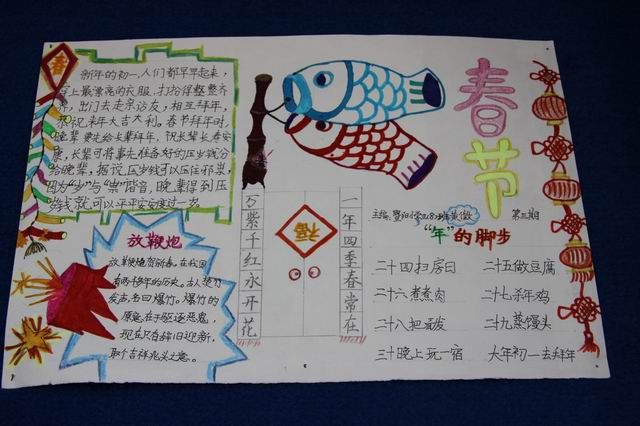 春
新年的初一,人们都早早起来,
穿上最漂亮的衣服,打扮得整整齐
齐,出门去走亲访友,相互拜年,
恭祝来年大吉大利。春节拜年时,
晚辈要先给长辈拜年,祝长辈长寿安
康,长辈可将事先准备好的压岁钱分
给晚辈,据说压岁钱可以压住邪祟,
因为“岁”与“祟”谐音,晚辈得到压
岁钱就可以平平安安度过一岁。
放鞭炮
放鞭炮贺新春,在我国
有两千年的历史。古人烧竹
发声,名曰爆竹。爆竹的
原意在于驱逐恶鬼,
现在只有辞旧迎新,
取个吉祥兆头之意。
万紫千红永开花
福
一年四季春常在
春节
主编:
第三期
“年”的脚步
二十四扫房日
二十五做豆腐
二十六煮煮肉
二十七杀年鸡
二十八把面发
二十九蒸馒头
三十晚上玩一宿
大年初一去拜年